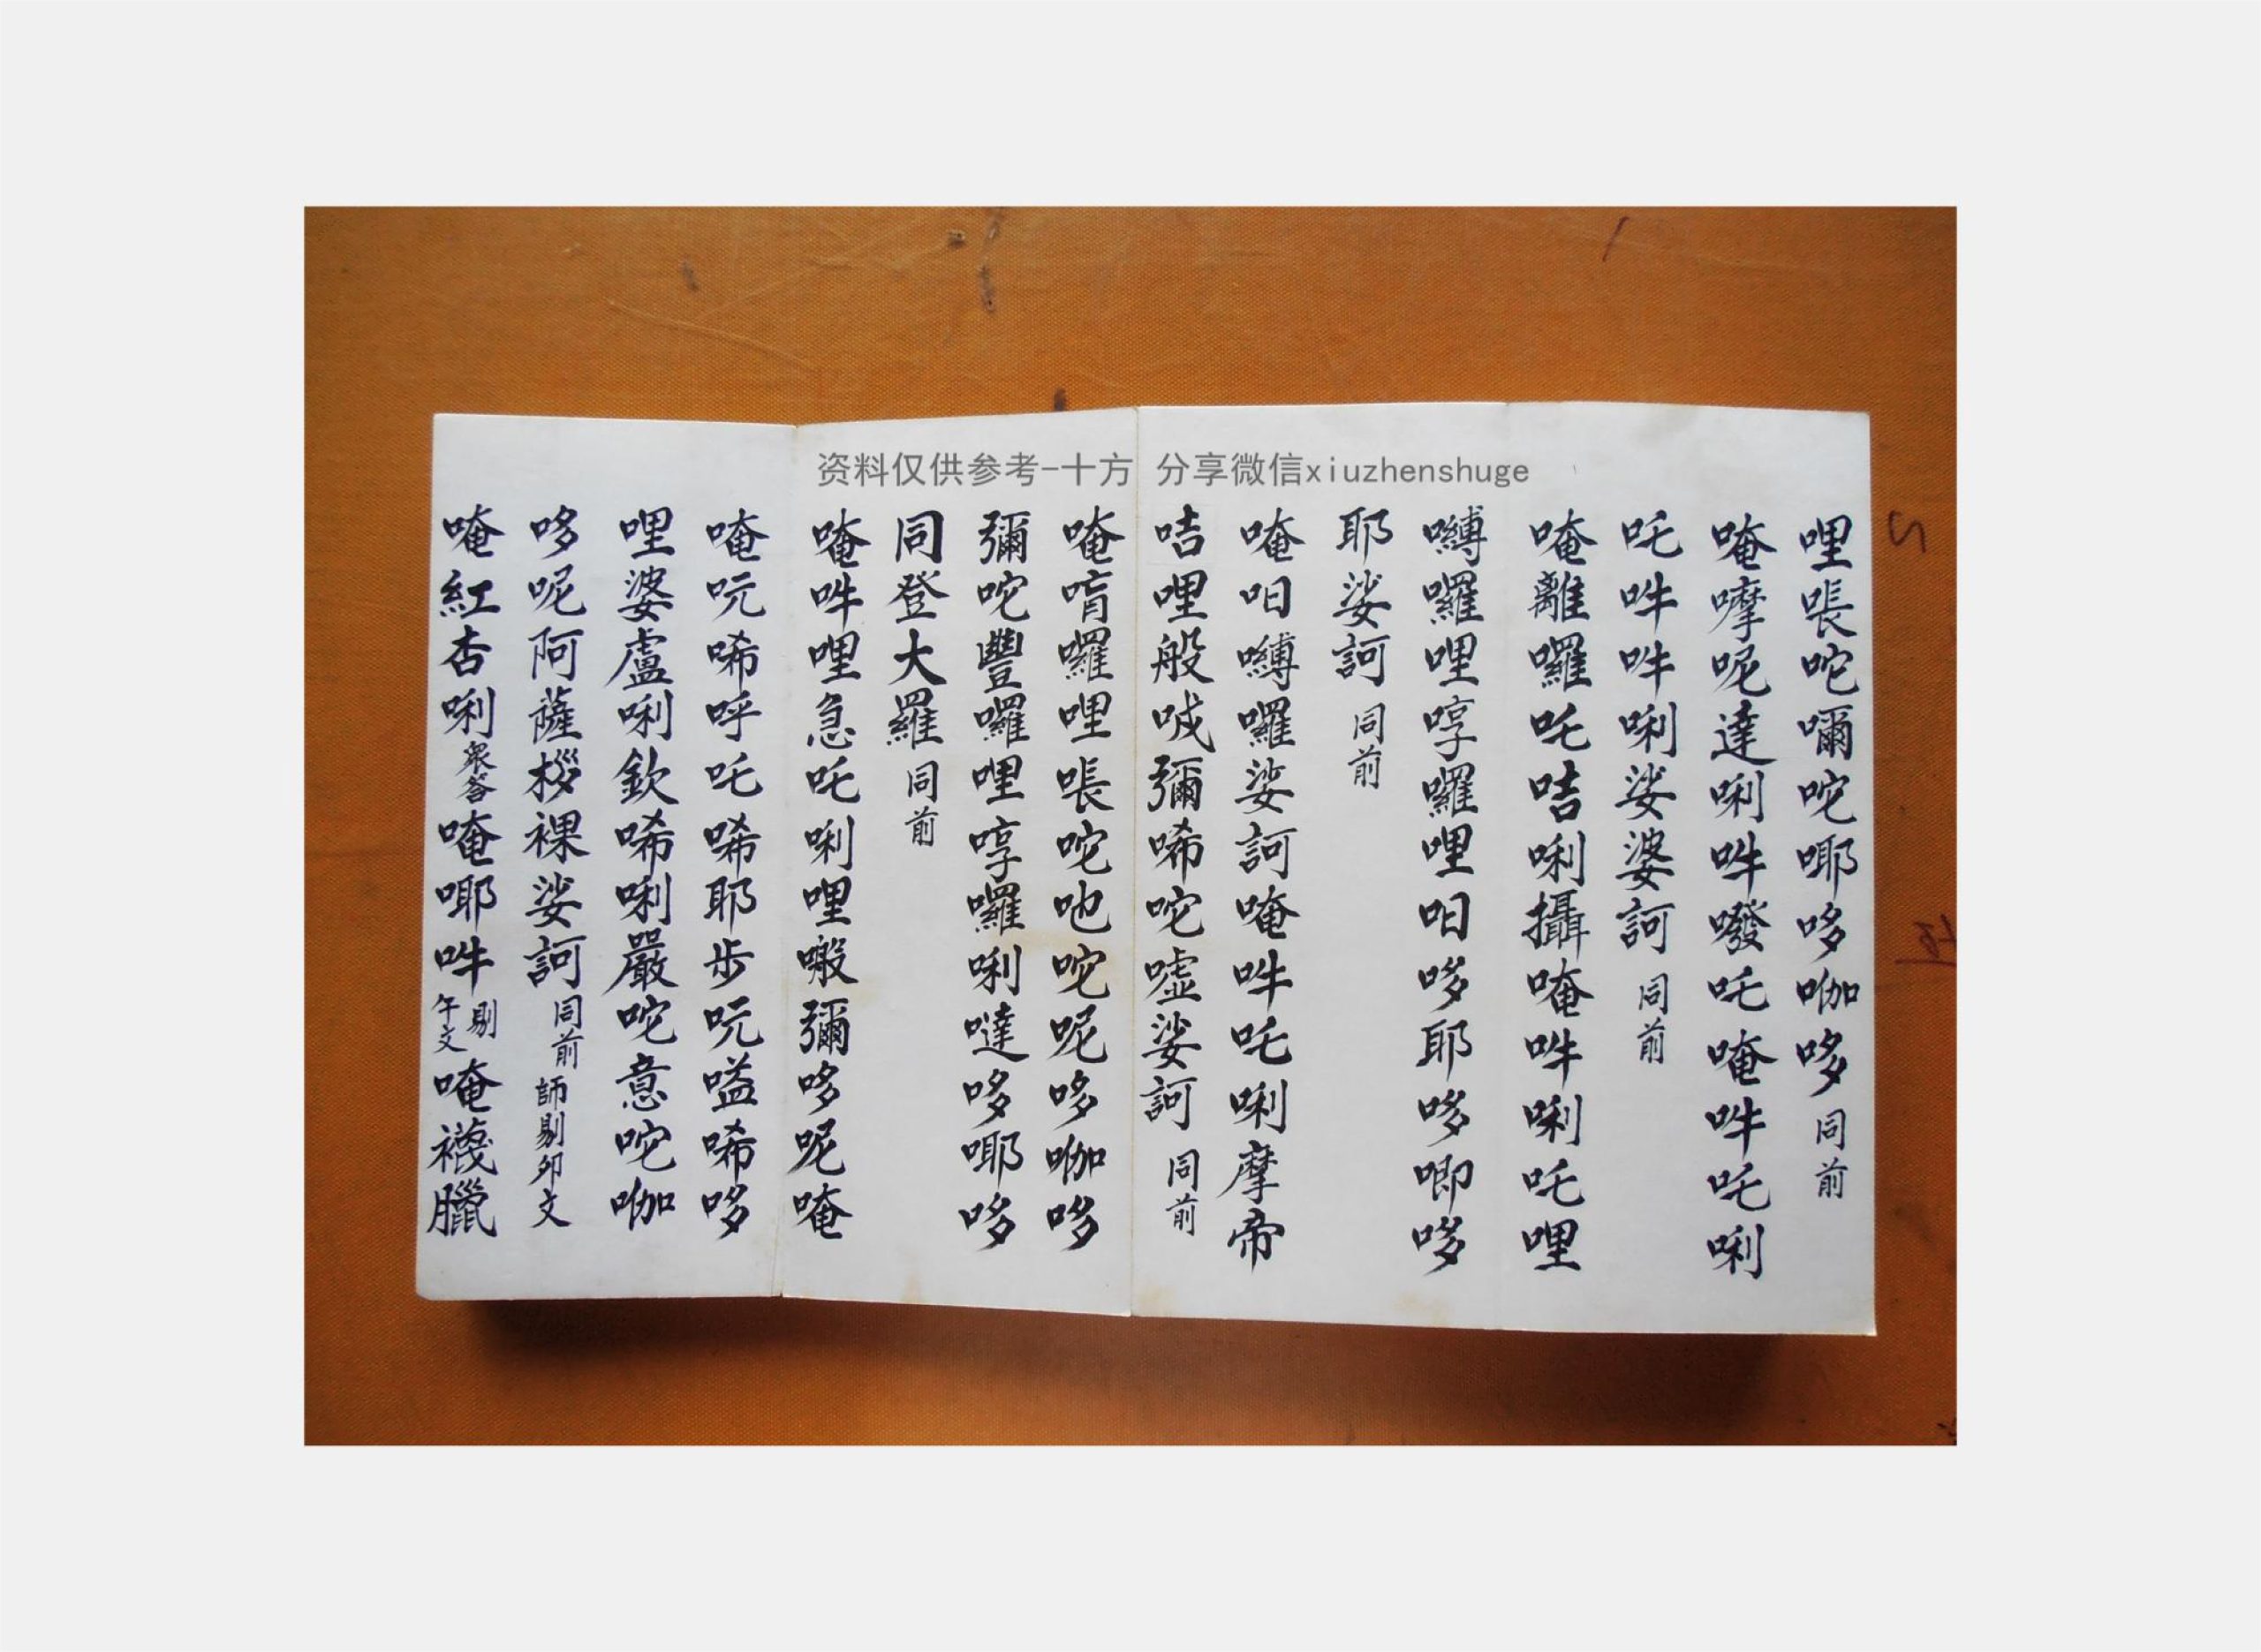 资料仅供参考-十方 分享微信xiuzhenshuge
哩㖊咜嚩咜哪哆咖哆 同前
唵嚤呢達唎吽嚩吒唵吽吒唎
吒吽吽唎娑婆訶 同前
唵離囉吒咭唎攝唵吽唎吒哩
嚩囉哩啍囉哩呬哆耶哆唧哆
耶娑訶 同前
唵呬嚩囉娑訶唵吽吒唎摩帝
咭哩般㖅彌唏咜噓娑訶 同前
唵唷囉哩㖊咜吔咜呢哆咖哆
彌咜豐囉哩啍囉唎噠哆哪哆
同登大羅 同前
唵吽哩急吒唎哩彌哆呢唵
唵唏呼吒唏耶步嗌唏哆
哩婆盧唎欽唏唎嚴咜意咜咖
哆呢阿薩桚裸娑訶 同前 師剔卯文
唵紅杏唎 衆答 唵哪吽 剔午文 唵襪臘